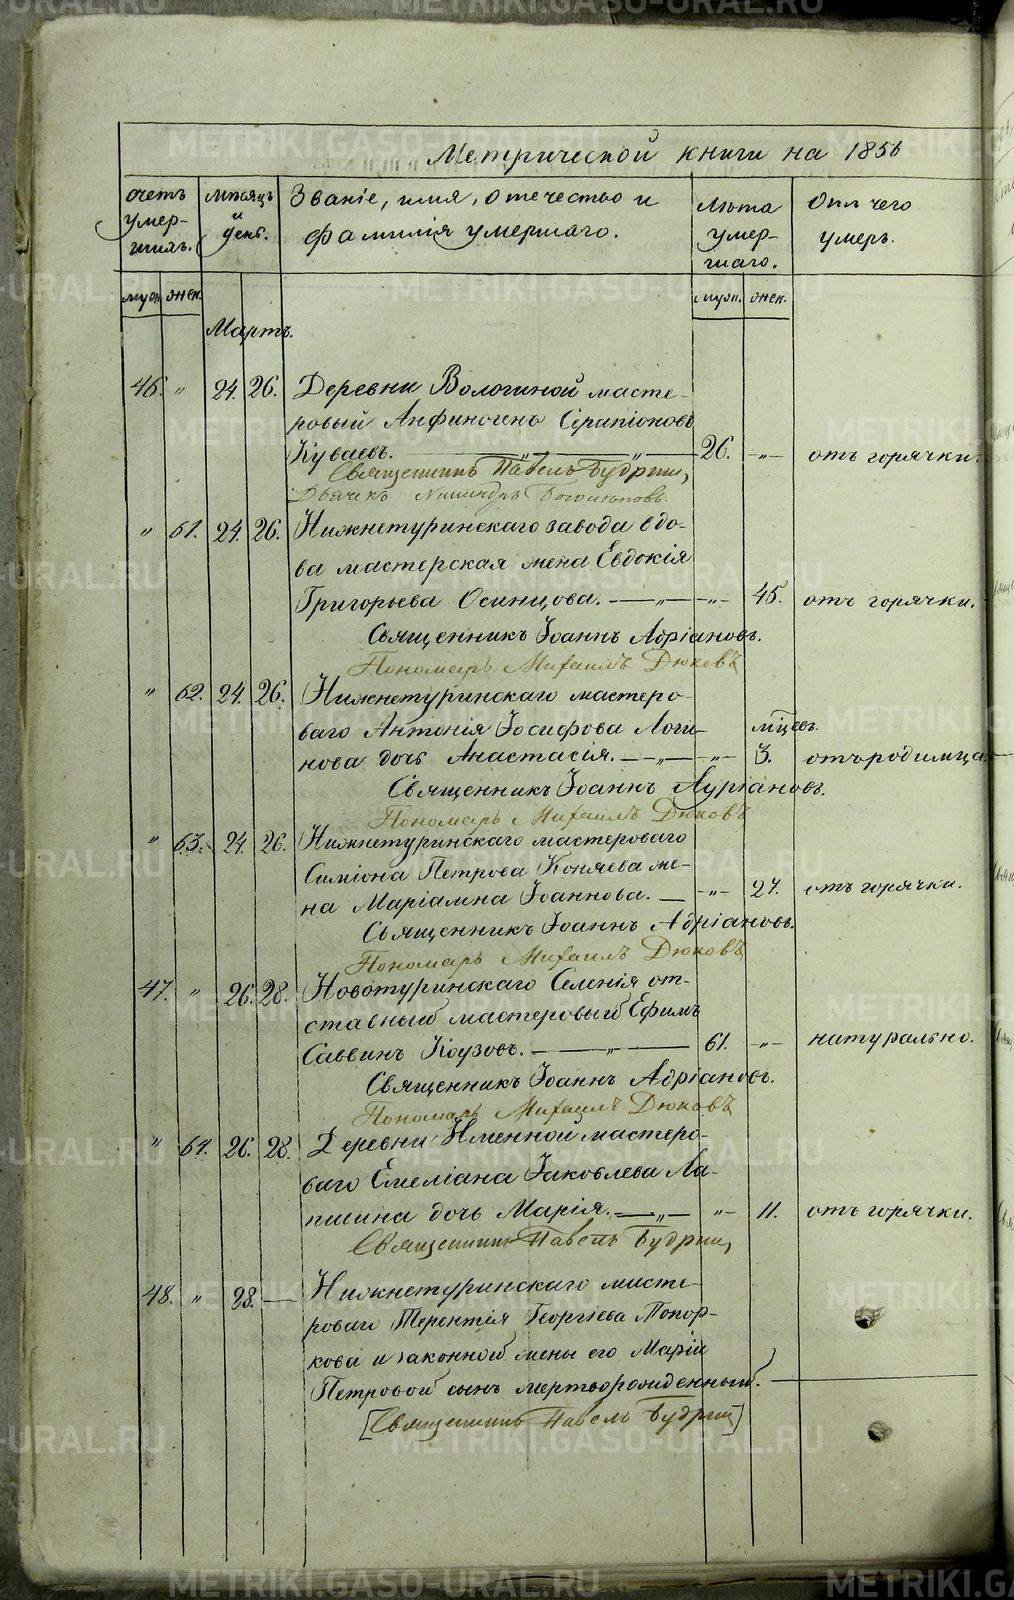 METRIKI.GASO-URAL.RU
Метрической книги на 1856
счетъ умер-шихъ.
мѣсяцъ и день.
Званіе, имя, отечество и фамилія умершаго.
Лѣта умер-шаго.
Отъ чего умеръ.
муж. жен.
муж. жен.
Мартъ.
46. " 24. 26. Деревни Вологиной масте-
ровый Анфиногенъ Серапіоновъ
Куваевъ. 26. " отъ горячки.
Священникъ Павелъ Будринъ,
Дьячекъ
" 61. 24. 26. Нижнетуринскаго завода вдо-
ва мастерская жена Евдокія
Григорьева Осинцова. " 45. отъ горячки.
Священникъ Іоаннъ Адріановъ.
Пономарь Михаилъ Дюковъ
" 62. 24. 26. Нижнетуринскаго мастеро-
ваго Антонія Іосифова Логи- мцевъ.
нова дочь Анастасія. " 3. отъ родимца.
Священникъ Іоаннъ Адріановъ.
Пономарь Михаилъ Дюковъ
" 63. 24. 26. Нижнетуринскаго мастероваго
Симіона Петрова Коняева же-
на Маріамна Іоаннова. " 27. отъ горячки.
Священникъ Іоаннъ Адріановъ.
Пономарь Михаилъ Дюковъ
47. " 26. 28. Новотуринскаго Селенія от-
ставный мастеровый Ефимъ
Саввинъ Коузовъ. 61. " натурально.
Священникъ Іоаннъ Адріановъ.
Пономарь Михаилъ Дюковъ
" 64. 26. 28. Деревни Именной мастеро-
ваго Емеліана Іаковлева Ла-
пшина дочь Марія. " 11. отъ горячки.
Священникъ Павелъ Будринъ,
48. " 28. — Нижнетуринскаго масте-
роваго Терентія Георгіева Топор-
кова и законной жены его Маріи
Петровой сынъ мертворожденный.
[Священникъ Павелъ Будринъ]